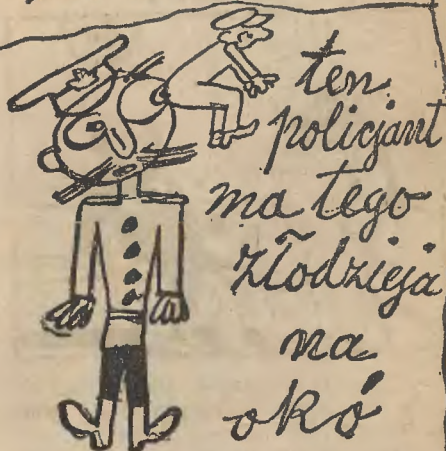 ten
policjant
ma tego
złodzieja
na
okó